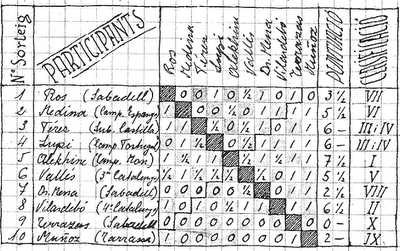 Nº Sorteig PARTICIPANTS Ros Medina Pérez Lupi Alekhine Vallés Dr. Rena Vilardebó Terrazas Muñoz PUNTUACIÓ CLASSIFICACIÓ
1 Ros (Sabadell) 0 0 1 0 ½ 1 0 1 0 3 ½ VII
2 Medina (Camp. Espanya) 1 0 0 ½ 0 1 1 1 1 5 ½ VI
3 Pérez (Sub. Castilla) 1 1 ½ 0 ½ 1 0 1 1 6 - III i IV
4 Lupi (Camp. Portugal) 0 1 ½ 0 ½ 1 1 1 1 6 - III i IV
5 Alekhine (Camp. Mon.) 1 ½ 1 1 ½ 1 ½ 1 1 7 ½ I
6 Vallés (3er Catalunya) ½ 1 ½ ½ ½ ½ 0 1 1 5 ½ V
7 Dr. Rena (Sabadell) 0 0 0 0 0 ½ 0 1 1 2 ½ VIII
8 Vilardebó (4rt Catalunya) 1 0 1 0 ½ 1 1 1 1 6 ½ II
9 Terrazas (Sabadell) 0 0 0 0 0 0 0 0 0 0 - X
10 Muñoz (Tarrassa) 1 0 0 0 0 0 0 0 1 2 - IX